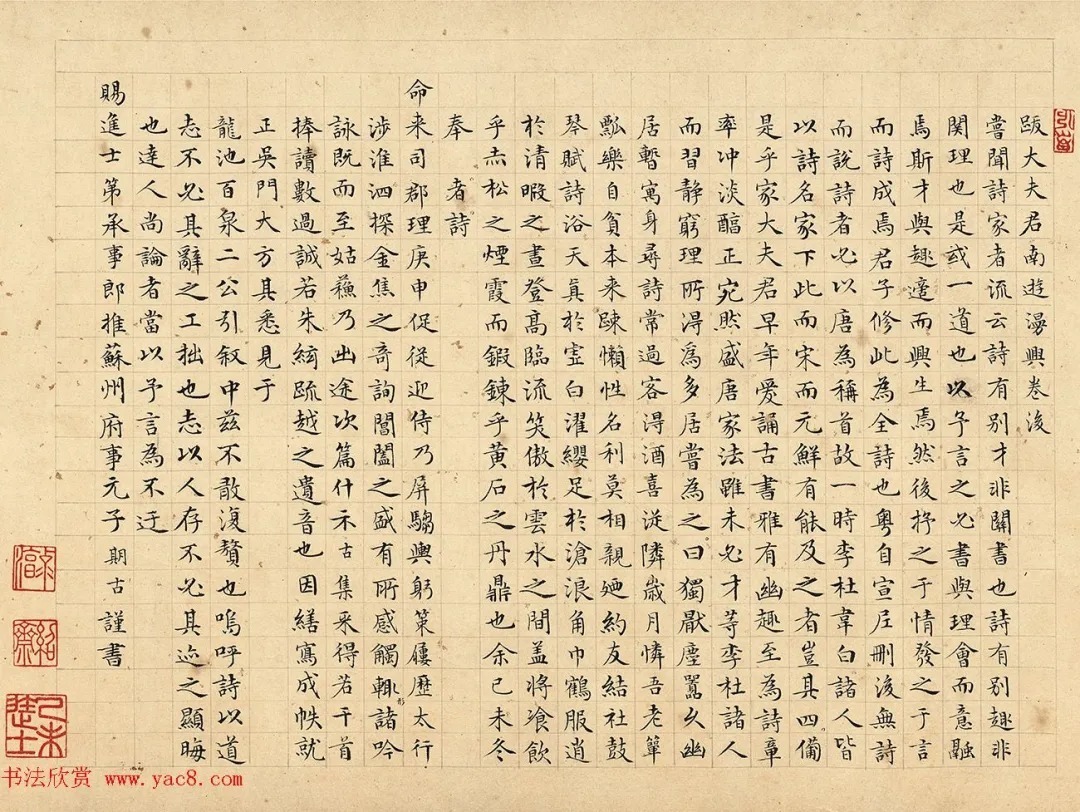 跋大夫君南遊漫興卷後
嘗聞詩家者流云詩有別才非關書也詩有別趣非
關理也是或一道也以予言之必書與理會而意融
焉斯才與趣適而興生焉然後抒之于情發之于言
而詩成焉君子修此為全詩也粵自宣尼刪後無詩
而說詩者必以唐為稱首故一時李杜韋白諸人皆
以詩名家下此而宋而元鮮有能及之者豈其四備
是乎家大夫君早年愛誦古書雅有幽趣至為詩章
率冲淡醞正宛然盛唐家法雖未必才等李杜諸人
而習靜窮理所得為多居嘗為之曰獨厭塵囂久幽
居暫寓身尋詩常過客得酒喜從隣歲月憐吾老簞
瓢樂自貧本来踈懶性名利莫相親廼約友結社鼓
琴賦詩浴天真於虛白濯纓足於滄浪角巾鶴服逍
於清暇之晝登高臨流笑傲於雲水之間盖將飡飲
乎赤松之煙霞而鍛鍊乎黃石之丹鼎也余己未冬
奉 者詩
命来司郡理庚申促從迎侍乃屏騶輿躬策屨歷太行
涉淮泗探金焦之奇詢閶闔之盛有所感觸輒形諸吟
詠既而至姑蘓乃出途次篇什示古集釆得若干首
捧讀數過誠若朱絃疏越之遺音也因繕寫成帙就
正吳門大方其悉見于
龍池百泉二公引叙中茲不敢復贅也嗚呼詩以道
志不必其辭之工拙也志以人存不必其迹之顯晦
也達人尚論者當以予言為不迂
賜進士第承事郎推蘇州府事元子期古謹書
己未進士
书法欣赏 www.yac8.com